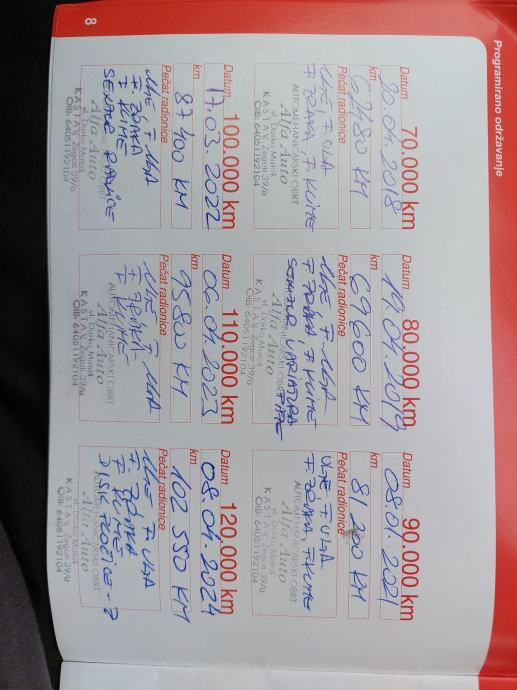 Programirano održavanje
70.000 km
Datum 20.04.2018
km 62480 KM
Pečat radionice
ULJE, F. ULJA
F. ZRAKA F. KLIME
AUTOMEHANIČARSKI OBRT
Alfa Auto
vl. Darko Matoš
KASTAV, Žegoti 39/a
OIB: 64061192104
80.000 km
Datum 19.04.2019
km 69600 KM
Pečat radionice
ULJE F. ULJA
F. ZRAKA, F. KLIME
AUTOMEHANIČARSKI OBRT
Alfa Auto
vl. Darko Matoš
KASTAV, Žegoti 39/a
OIB: 64061192104
90.000 km
Datum 08.01.2021
km 81 KM
Pečat radionice
ULJE F. ULJA
F. ZRAKA F. KLIME
AUTOMEHANIČARSKI OBRT
Alfa Auto
vl. Darko Matoš
KASTAV, Žegoti 39/a
OIB: 64061192104
100.000 km
Datum 17.03.2022
km 87400 KM
Pečat radionice
ULJE F. ULJA
F. ZRAKA
F. KLIME
Alfa Auto
vl. Darko Matoš
KASTAV, Žegoti 39/a
OIB: 64061192104
110.000 km
Datum 06.04.2023
km 95800 KM
Pečat radionice
ULJE F. ULJA
F. ZRAKA
F. KLIME
AUTOMEHANIČARSKI OBRT
Alfa Auto
vl. Darko Matoš
KASTAV, Žegoti 39/a
OIB: 64061192104
120.000 km
Datum 08.04.2024
km 102 550 KM
Pečat radionice
ULJE F. ULJA
F. ZRAKA
F. KLIME
DISK PLOČICE
Alfa Auto
vl. Darko Matoš
KASTAV, Žegoti 39/a
OIB: 64061192104
8